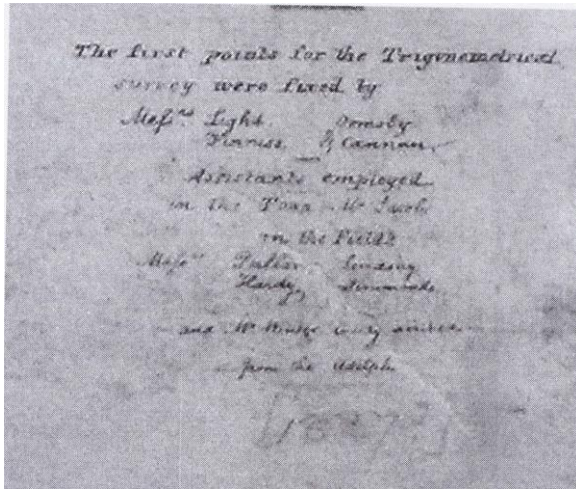 The first points for the Trigonometrical
survey were fixed by
Messrs Light Ormsby
Finniss & Cannan
Assistants employed
in the Town Mr Jacob
in the Field
Messrs Tuller Lindsay
Hardy, Symmonds
and Mr Winter
from the Adelphi
[1837]